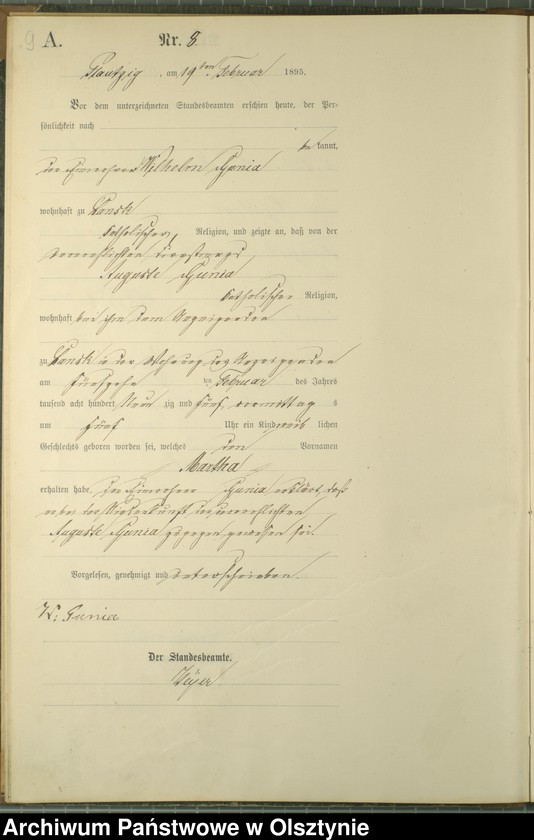 9 A. Nr. 8.
Plautzig, am 19ten Februar 1895.
Vor dem unterzeichneten Standesbeamten erschien heute, der Per-
sönlichkeit nach
be kannt,
der Einwohner Wilhelm Gunia
wohnhaft zu Lansk
katholischer Religion, und zeigte an, daß von der
verehelichten
Auguste Gunia
katholischer Religion,
wohnhaft bei ihm dem Anzeigenden
zu Lansk in der Wohnung des Anzeigenden
am fünfzehn ten Februar des Jahres
tausend acht hundert Neun zig und fünf, vormittag s
um fünf Uhr ein Kind weib lichen
Geschlechts geboren worden sei, welches den Vornamen
Martha
erhalten habe. Der Einwohner Gunia erklärt, daß
er bei der Niederkunft der verehelichten
Auguste Gunia zugegen gewesen sei.
Vorgelesen, genehmigt und unterschrieben.
W: Gunia
Der Standesbeamte.
Archiwum Państwowe w Olsztynie